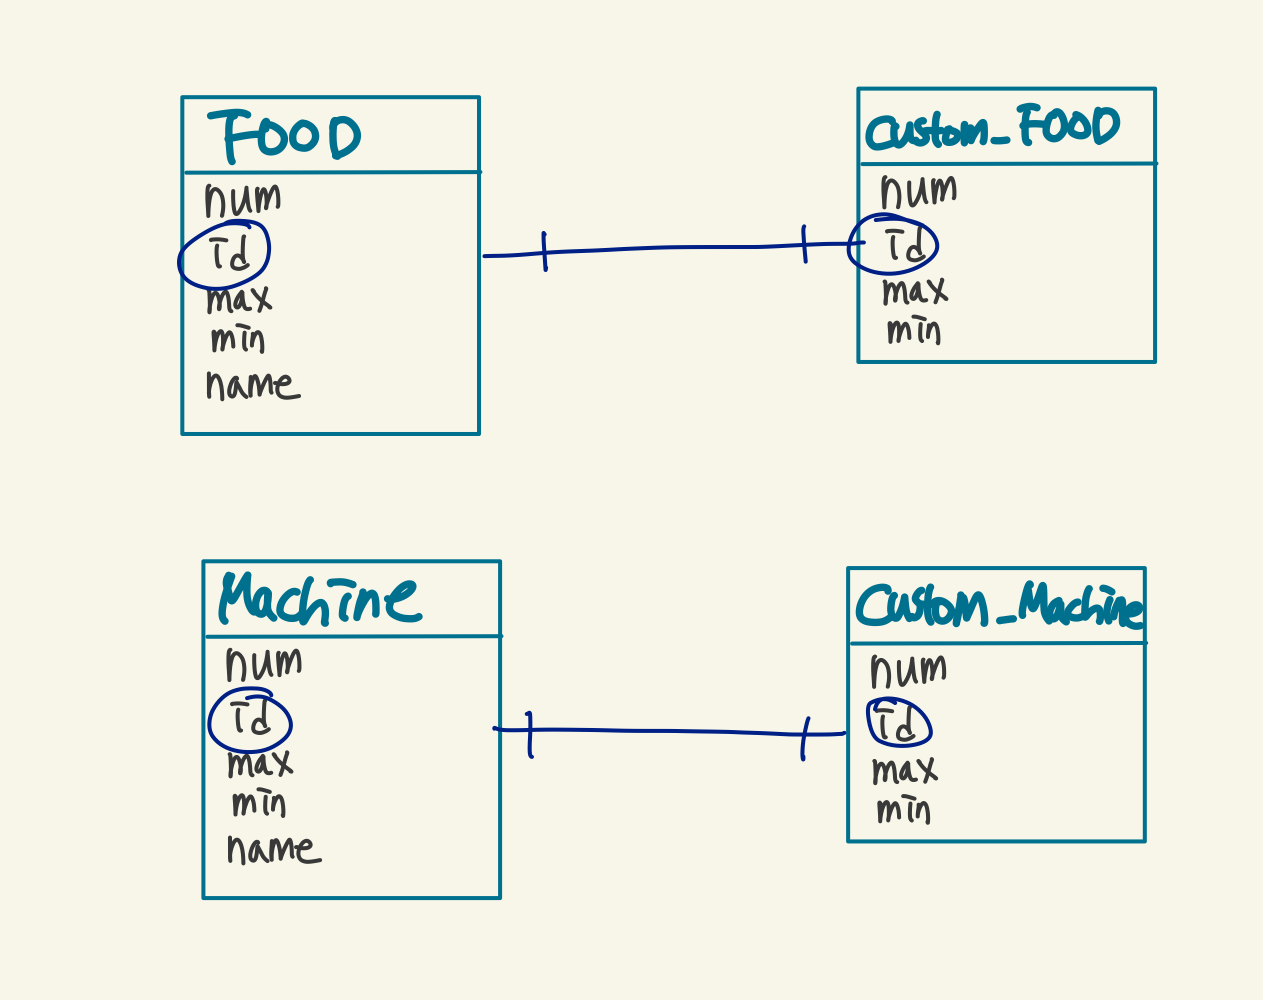 FOOD
num
id
max
min
name
Custom_FOOD
num
id
max
min
Machine
num
id
max
min
name
Custom_Machine
num
id
max
min